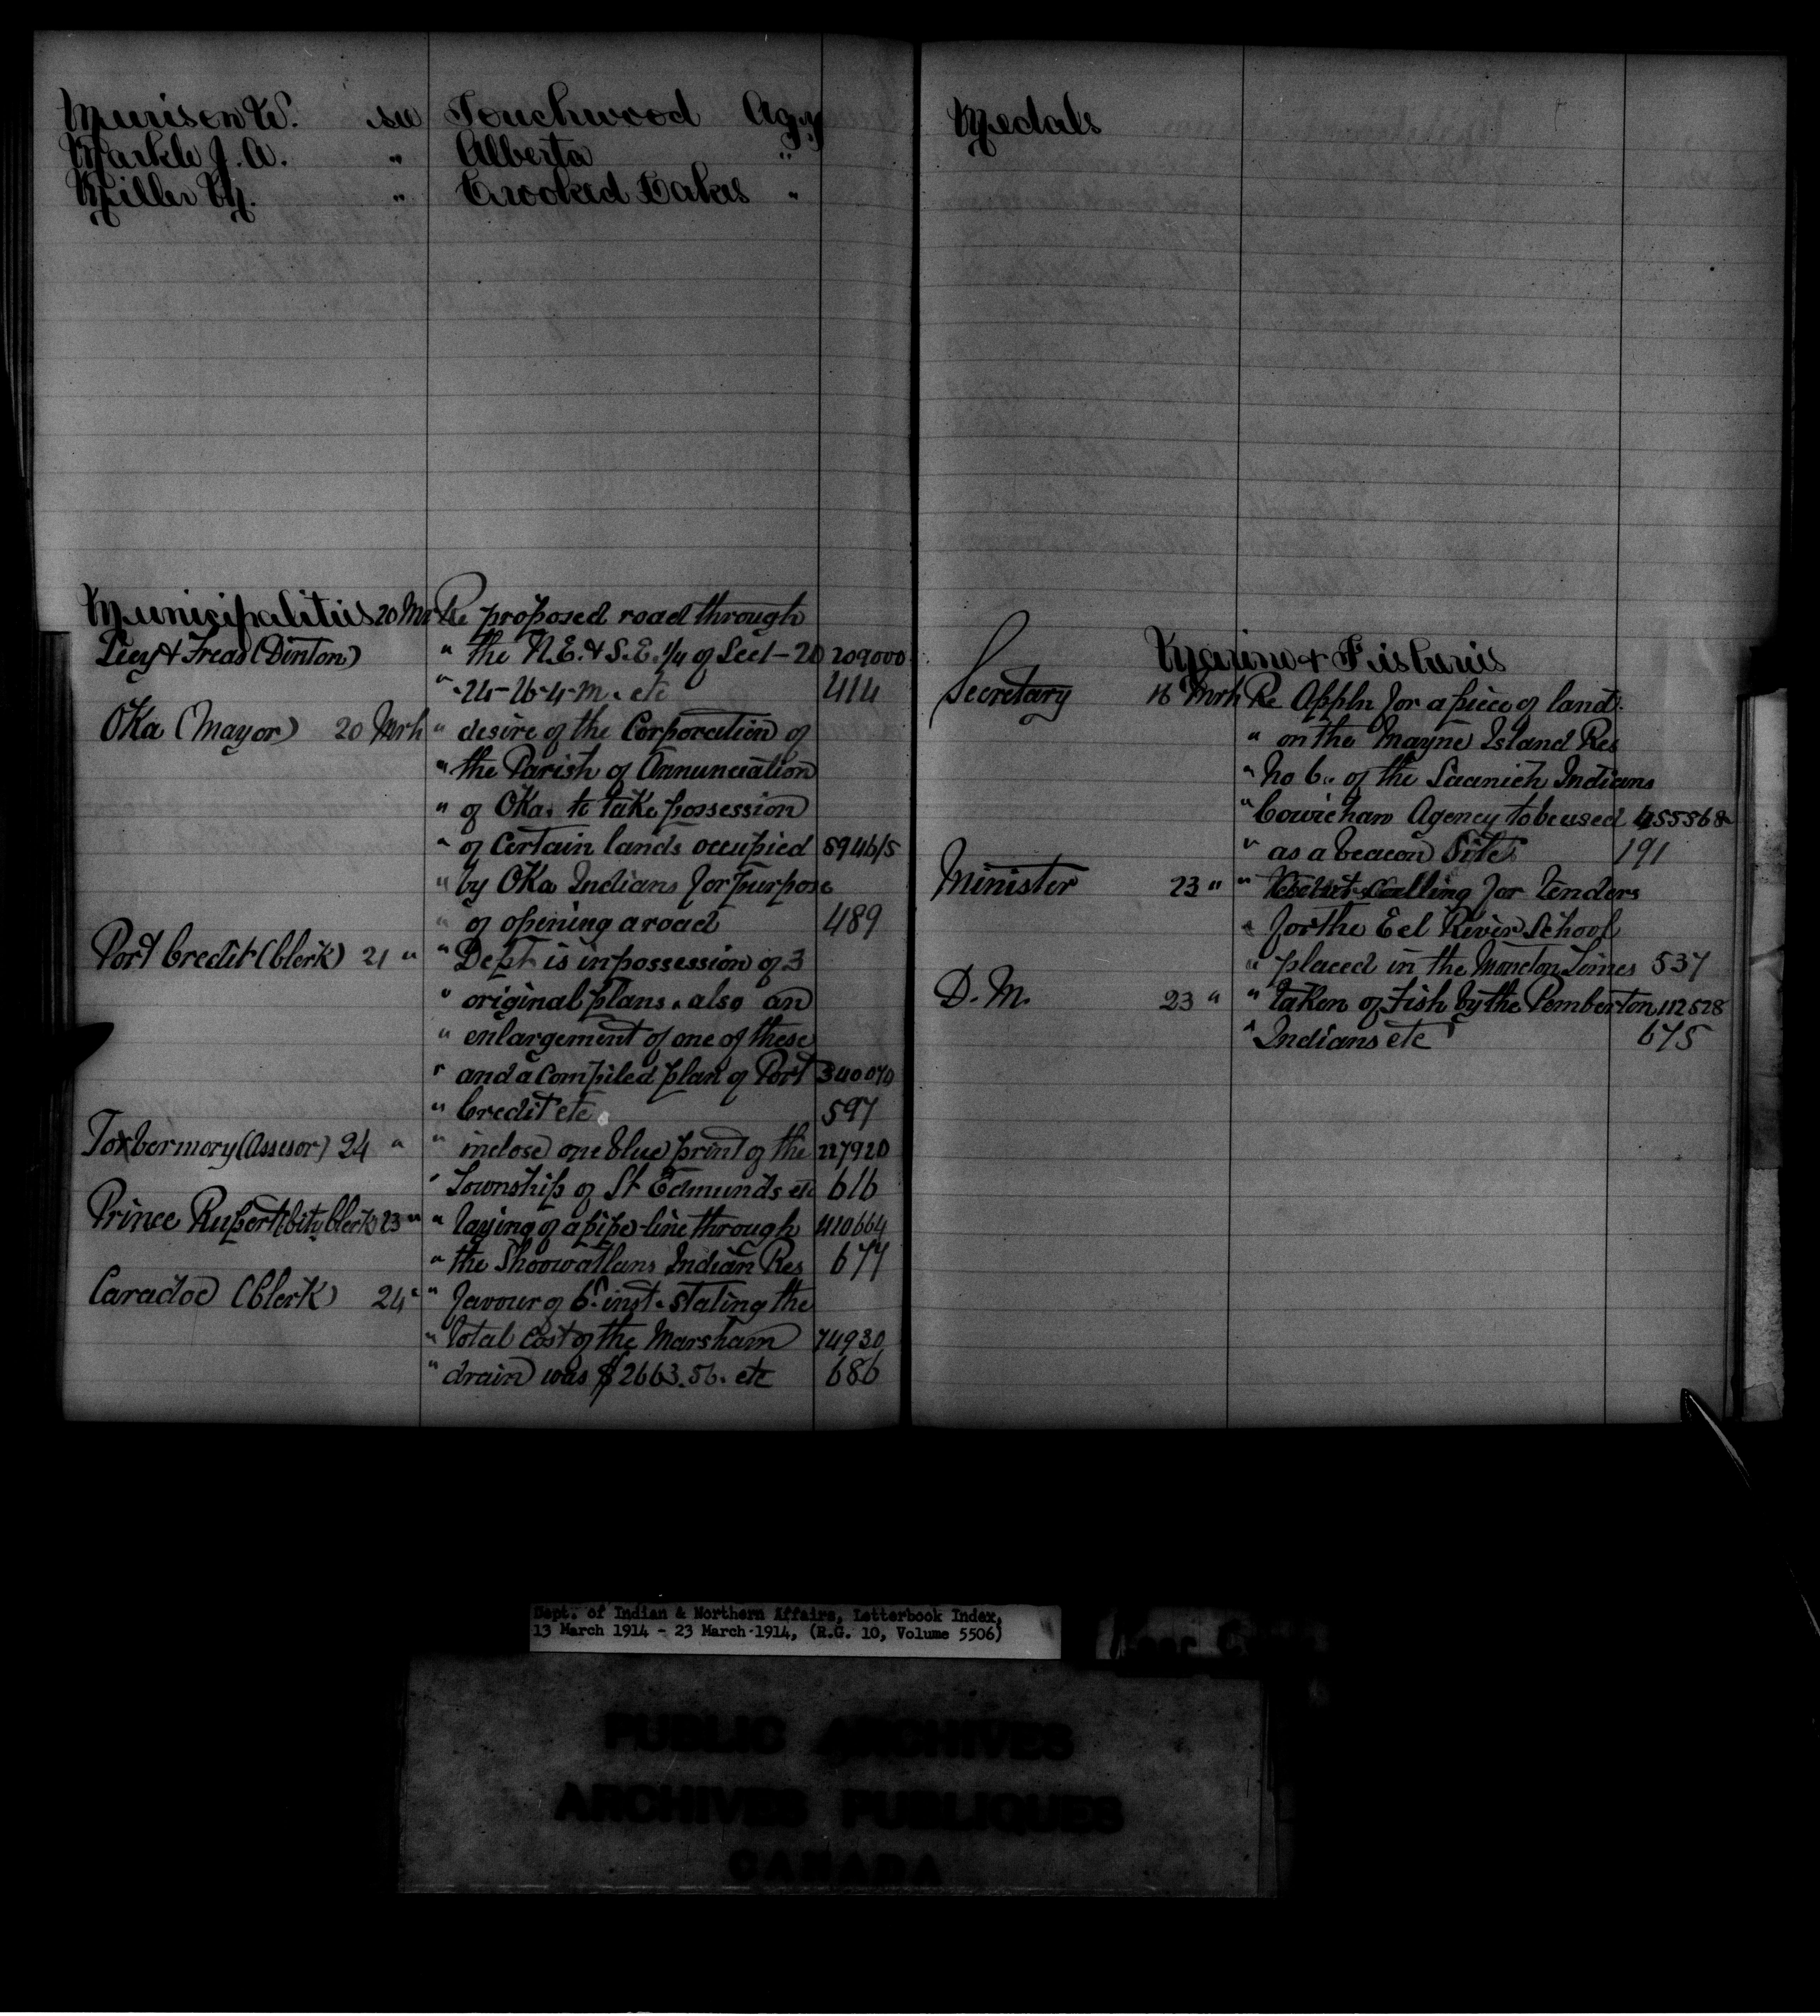 Murison W. see Touchwood Agy
Markle J. A. " Alberta "
Miller M. " Crooked Lakes "
Municipalities 20 Mr Re proposed road through
(Dinton) " the N.E. & S.E. 1/4 of Sect - 20 209000
" -24-26-4-M. etc 414
Oka (Mayor) 20 Mrh " desire of the Corporation of
" the Parish of Annunciation
" of Oka, to take possession
" of Certain lands occupied 8946/5
" by Oka Indians for purpose
" of opening a road 489
Port Credit (Clerk) 21 " " Dept is in possession of 3
" original plans, also an
" enlargement of one of these
" and a compiled plan of Port 340070
" Credit etc 597
Toxbermory (Assesor) 24 " " inclose one blue print of the 227920
" Township of St Edmunds etc 616
Prince Rupert City Clerk 23 " " laying of a pipe-line through 410664
" the Shoowatlans Indian Res 677
Caradoc (Clerk) 24 " " favour of 6th inst. stating the
" total cost of the Marsham 74930
" drain was $2663.56. etc 686
Medals
Marine & Fisheries
Secretary 16 Mrh Re Appln for a piece of land
" on the Mayne Island Res
" No 6. of the Saanich Indians
" Cowichan Agency to be used 455568
" as a beacon Site 191
Minister 23 " " calling for Tenders
" for the Eel River School
" placed in the Moncton Times 537
D. M. 23 " " taken of Fish by the Pemberton 112528
" Indians etc 675
Dept. of Indian & Northern Affairs, Letterbook Index,
13 March 1914 - 23 March 1914, (R.G. 10, Volume 5506)
PUBLIC ARCHIVES
ARCHIVES PUBLIQUES
CANADA